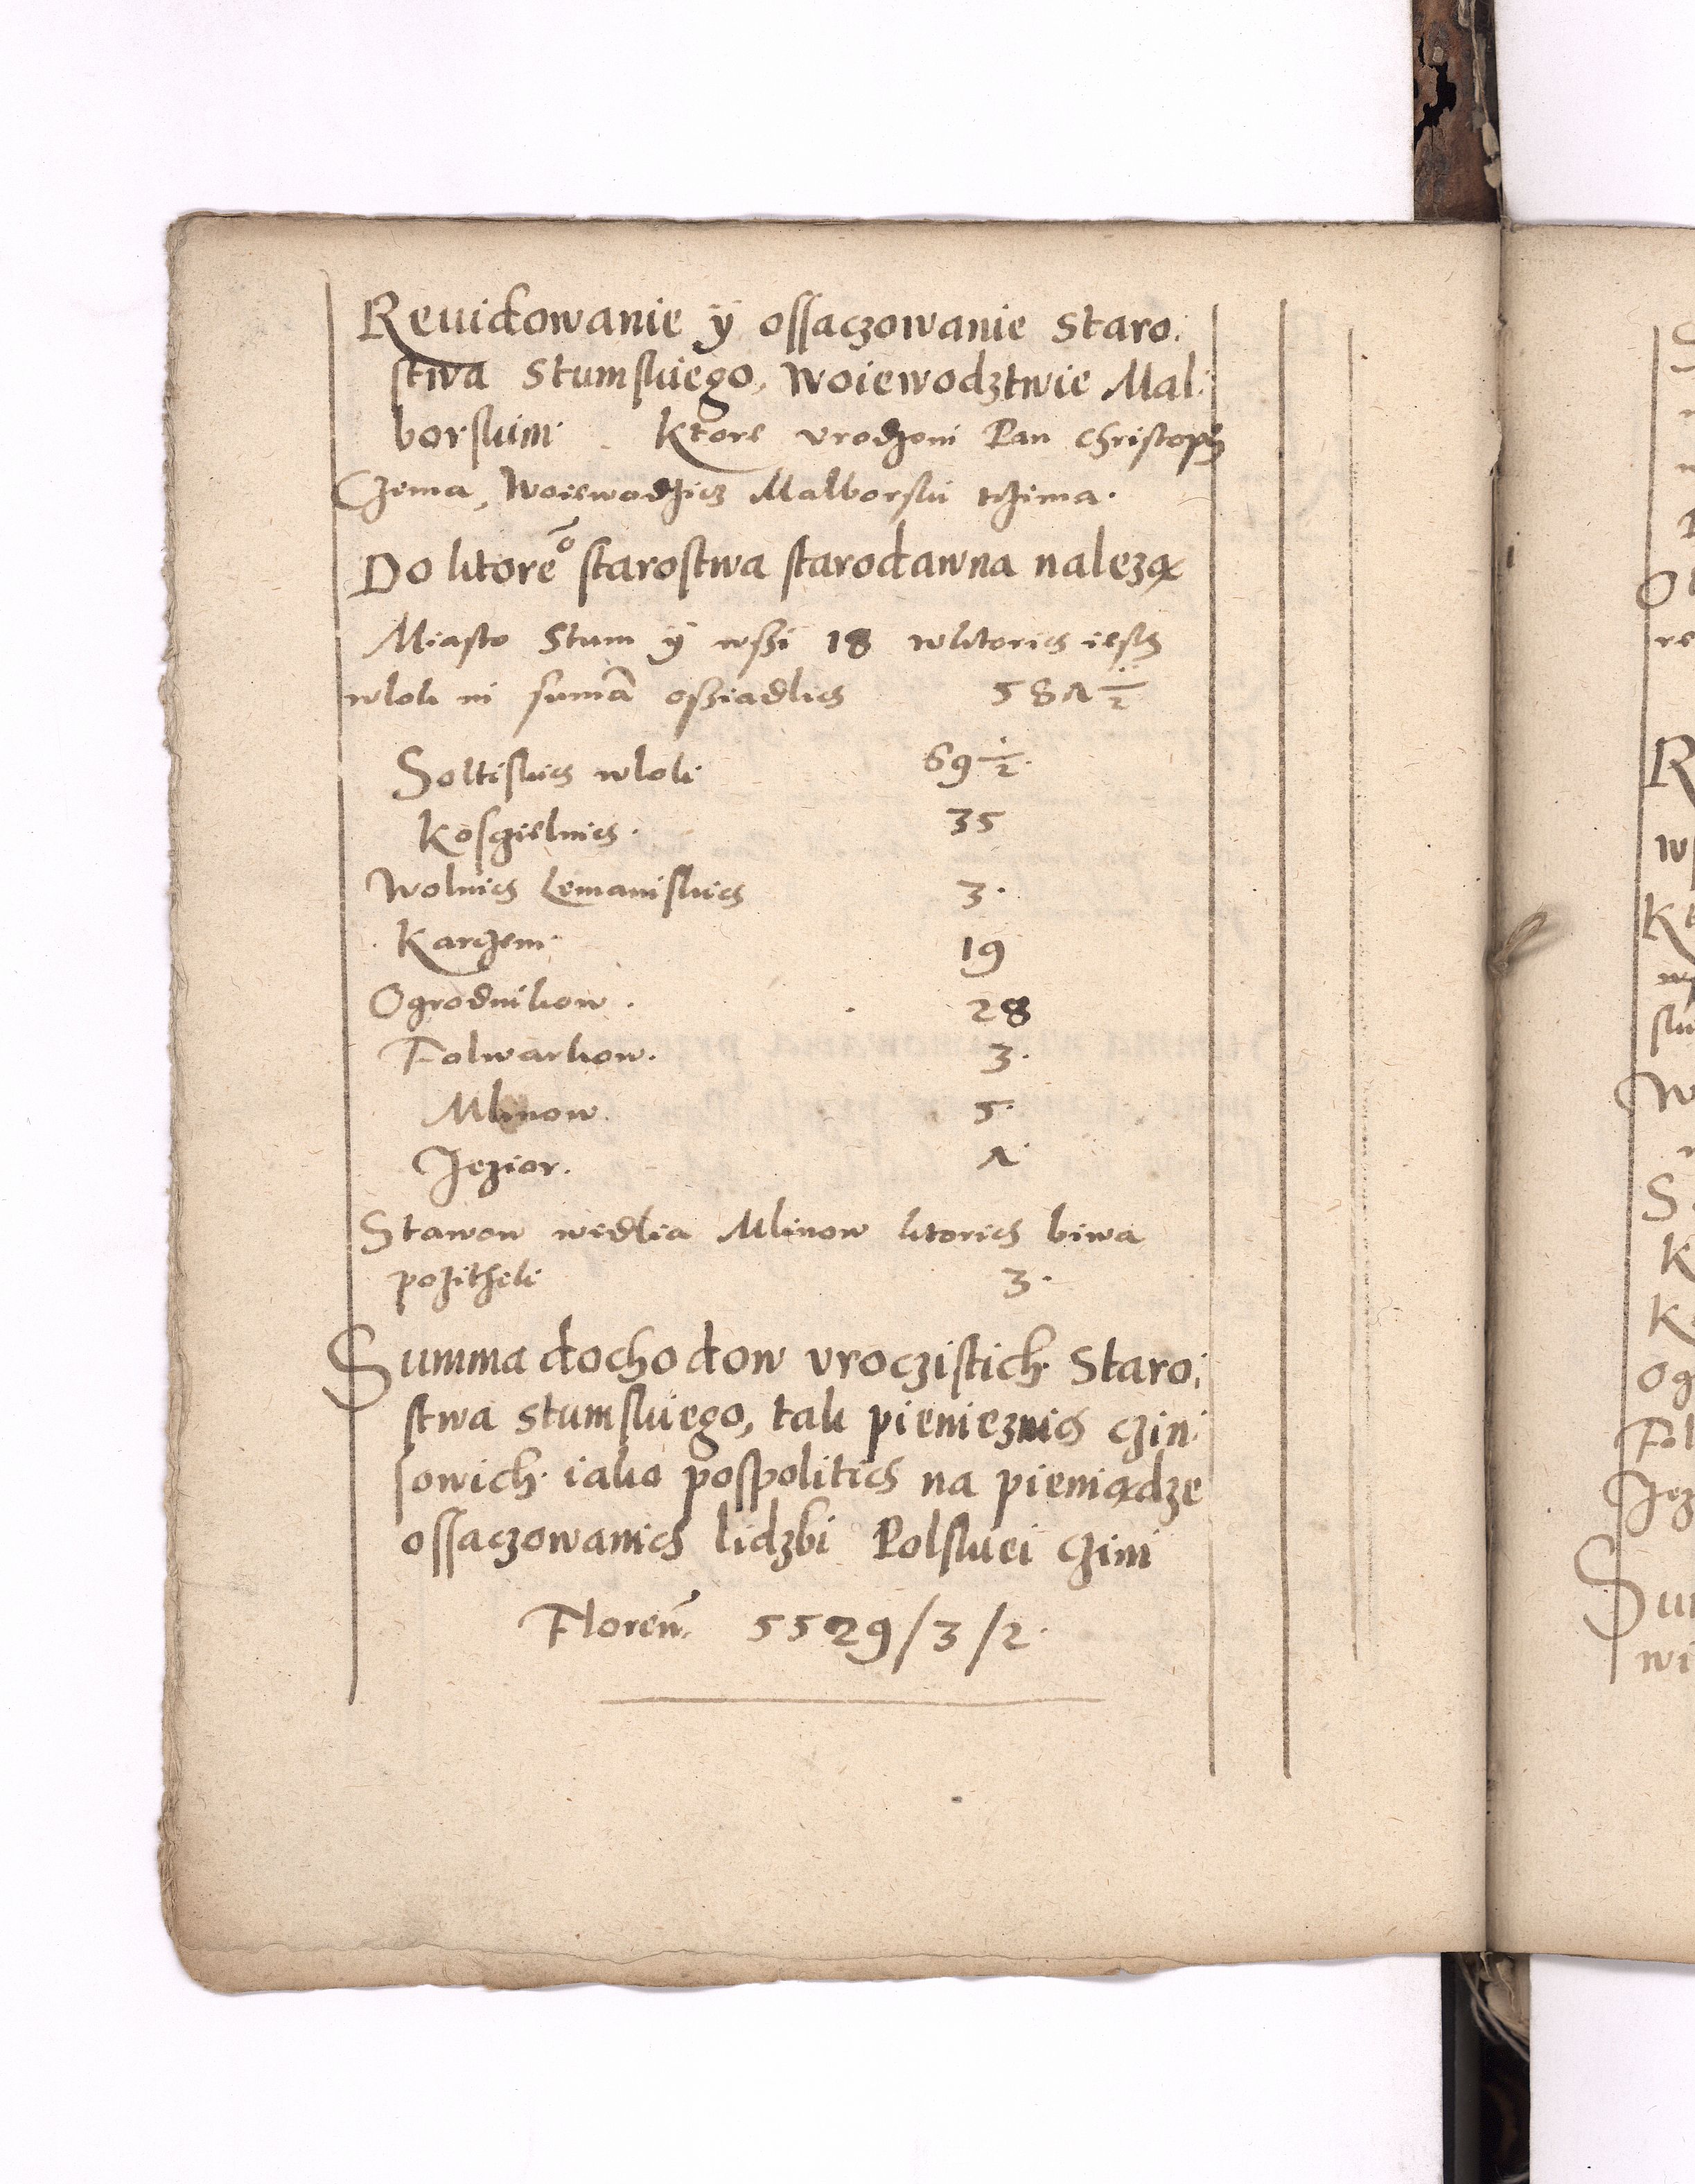 Reuidowanie ÿ ossaczowanie Staro:
stwa Stumskiego, Woiewodztwie Mal:
borskim. Ktore vrodzoni Pan Christoph
Czema, Woiewodzicz Malborski trzima.
Do ktore͠o starostwa starodawna nalezą
Miasto Stum ÿ wsszi 18 wktorich iesth
wlok in sum̃a osziadlich 581 1/2
Soltiskich wlok 69 1/2
Kosczielnich. 35
Wolnich Lemaniskich 3.
Karczem. 19
Ogrodnikow. 28
Folwarkow. 3.
Mlinow. 5.
Jezior. 1.
Stawow wedlia Mlinow ktorich biwa
pozithek 3.
Summa dochodow vroczistich Staro:
stwa Stumskiego, tak pienieznich czin:
sowich. iako pospolitich na pieniądze
ossaczowanich lidzbi Polskiei czini
Floren̄. 5529/3/2.